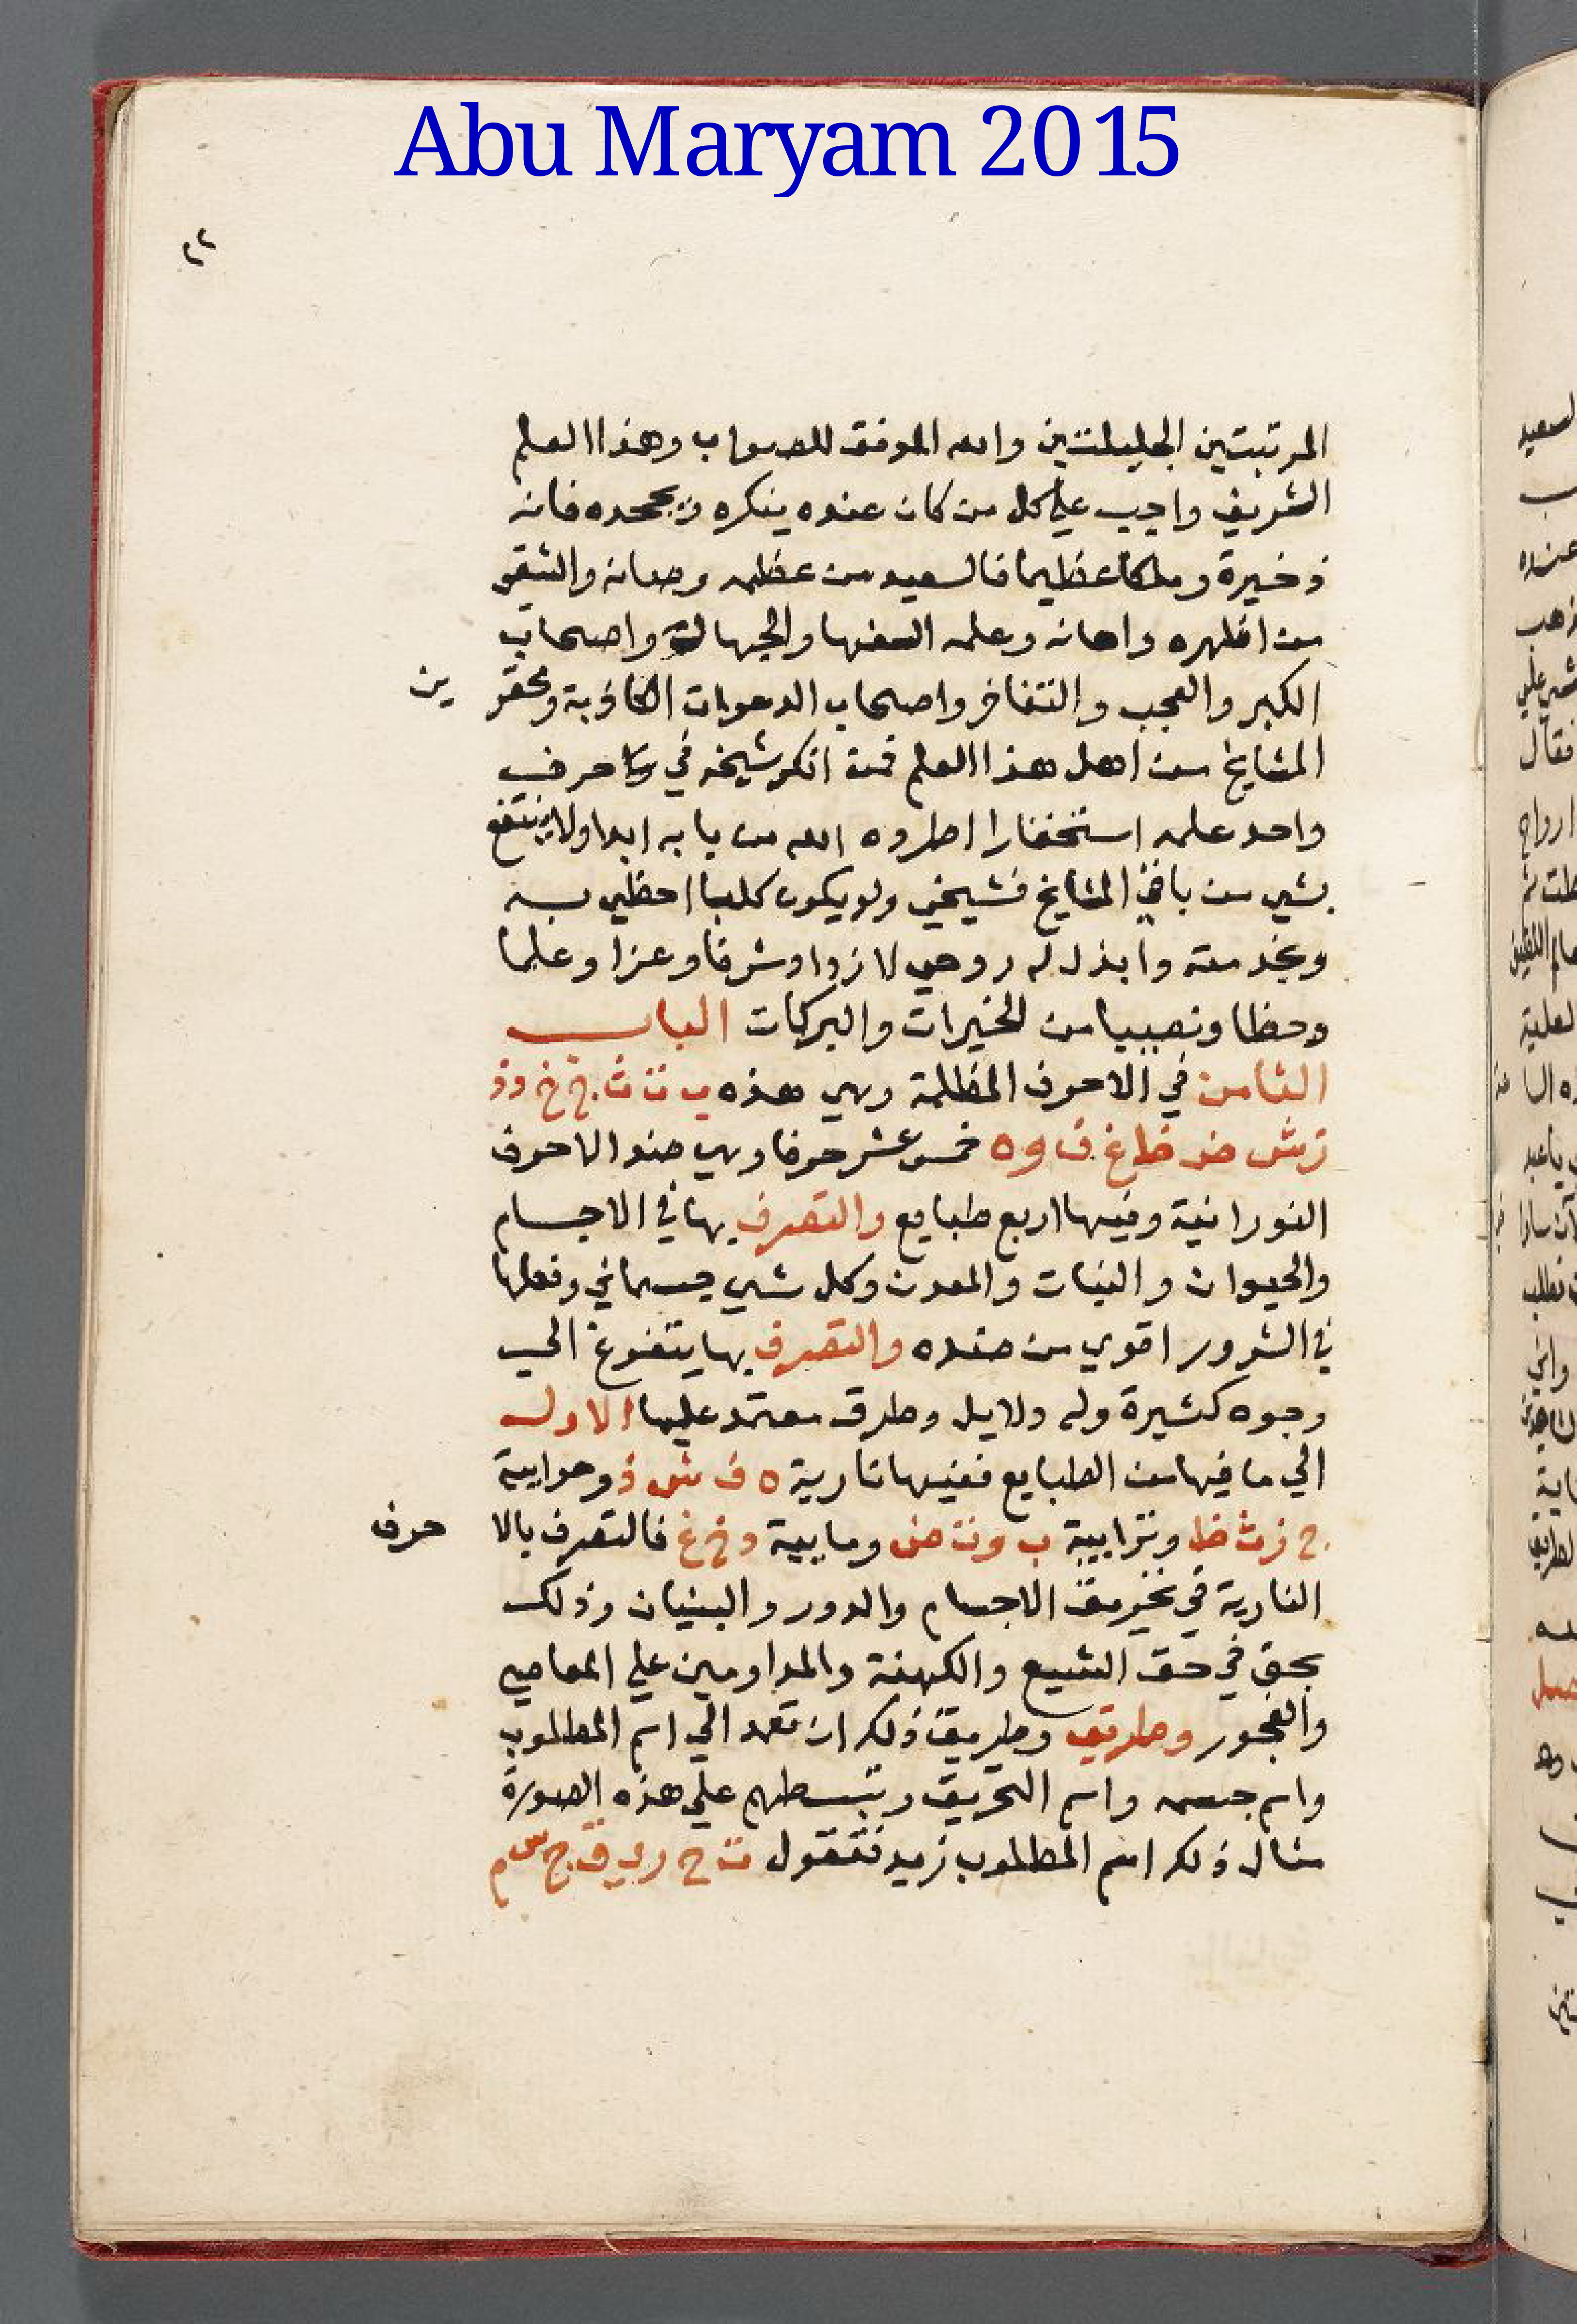 Abu Maryam 2015
٢٢
المرتبتين الجليلتين والله الموفق للصواب وهذا العلم
الشريف واجب علي كل من كان عنده ينكره ويجحده فانه
ذخيرة وملكا عظيما فالسعيد من عظمه وصانه والشقي
من اظهره واهانه وعلمه السفها والجهالة واصحاب
الكبر والعجب والتفاخر واصحاب الدعوات الكاذبة ومحقرين
المشايخ من اهل هذا العلم فمن انكر شيخه في حرف
واحد علمه استحقارا اطرده الله من بابه ابدا ولا ينتفع
بشي من باقي المشايخ فشيخي ولو يكون كلبا احظي به
وبخدمته وابذل له روحي لازداد شرفا وعزا وعلما
وحظا ونصيبا من الخيرات والبركات الباب
الثامن في الاحرف المظلمة وهي هذه ب ت ث ج خ د ذ
ز ش ض ظ غ ف و ه خمس عشر حرفا وهي ضد الاحرف
النورانية وفيها اربع طبايع والتصرف بها في الاجسام
والحيوان والنبات والمعدن وكل شي جسماني وفعلها
في الشرور اقوي من ضده والتصرف بها يتفرغ الي
وجوه كثيرة وله دلايل وطرق معتمد عليها الاول
الي ما فيها من الطبايع ففيها نارية ه ف ش ذ وهوايية
ج ز ث ظ وترابية ب و ت ض ومايية د خ غ فالتصرف بالاحرف
النارية في تخريق الاجسام والدور والبنيان وذلك
بحق في حق الشيع والكهنة والمداومين علي المعاصي
والفجور وطريق وطريق ذلك ان تعمد الي اسم المطلوب
واسم جسمه واسم الحريق وتبسطهم علي هذه الصورة
مثال ذلك اسم المطلوب زيد فتقول ت ح ر ي ق ج س م